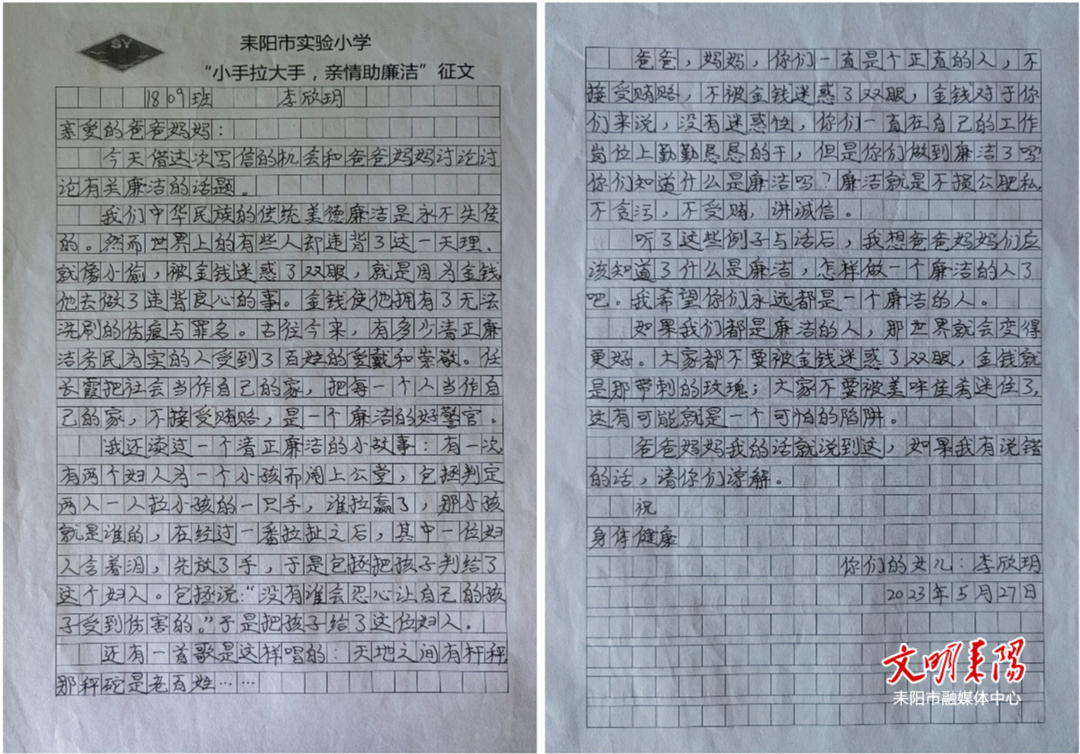 SY
耒阳市实验小学
“小手拉大手，亲情助廉洁”征文
1809班 李欣玥
亲爱的爸爸妈妈：
今天借这次写信的机会和爸爸妈妈讨论讨
论有关廉洁的话题。
我们中华民族的传统美德廉洁是永不失传
的。然而世界上的有些人却违背了这一天理，
就像小偷，被金钱迷惑了双眼，就是因为金钱
他去做了违背良心的事。金钱使他拥有了无法
洗刷的伤痕与罪名。古往今来，有多少清正廉
洁务民为实的人受到了百姓的爱戴和崇敬。任
长霞把社会当作自己的家，把每一个人当作自
己的家，不接受贿赂，是一个廉洁的好警官。
我还读过一个清正廉洁的小故事：有一次
有两个妇人为一个小孩而闹上公堂，包拯判定
两人一人拉小孩的一只手，谁拉赢了，那小孩
就是谁的，在经过一番拉扯之后，其中一位妇
人含着泪，先放了手，于是包拯把孩子判给了
这个妇人。包拯说：“没有谁会忍心让自己的孩
子受到伤害的。”于是把孩子给了这位妇人。
还有一首歌是这样唱的：天地之间有杆秤，
那秤砣是老百姓……
爸爸，妈妈，你们一直是个正直的人，不
接受贿赂，不被金钱迷惑了双眼，金钱对于你
们来说，没有迷惑性，你们一直在自己的工作
岗位上勤勤恳恳的干，但是你们做到廉洁了吗？
你们知道什么是廉洁吗？廉洁就是不损公肥私，
不贪污，不受贿，讲诚信。
听了这些例子与话后，我想爸爸妈妈们应
该知道了什么是廉洁，怎样做一个廉洁的人了
吧。我希望你们永远都是一个廉洁的人。
如果我们都是廉洁的人，那世界就会变得
更好。大家都不要被金钱迷惑了双眼，金钱就
是那带刺的玫瑰；大家不要被美味佳肴迷住了，
这有可能就是一个可怕的陷阱。
爸爸妈妈我的话就说到这，如果我有说错
的话，请你们谅解。
祝
身体健康
你们的女儿：李欣玥
2023年5月27日
文明耒阳
耒阳市融媒体中心